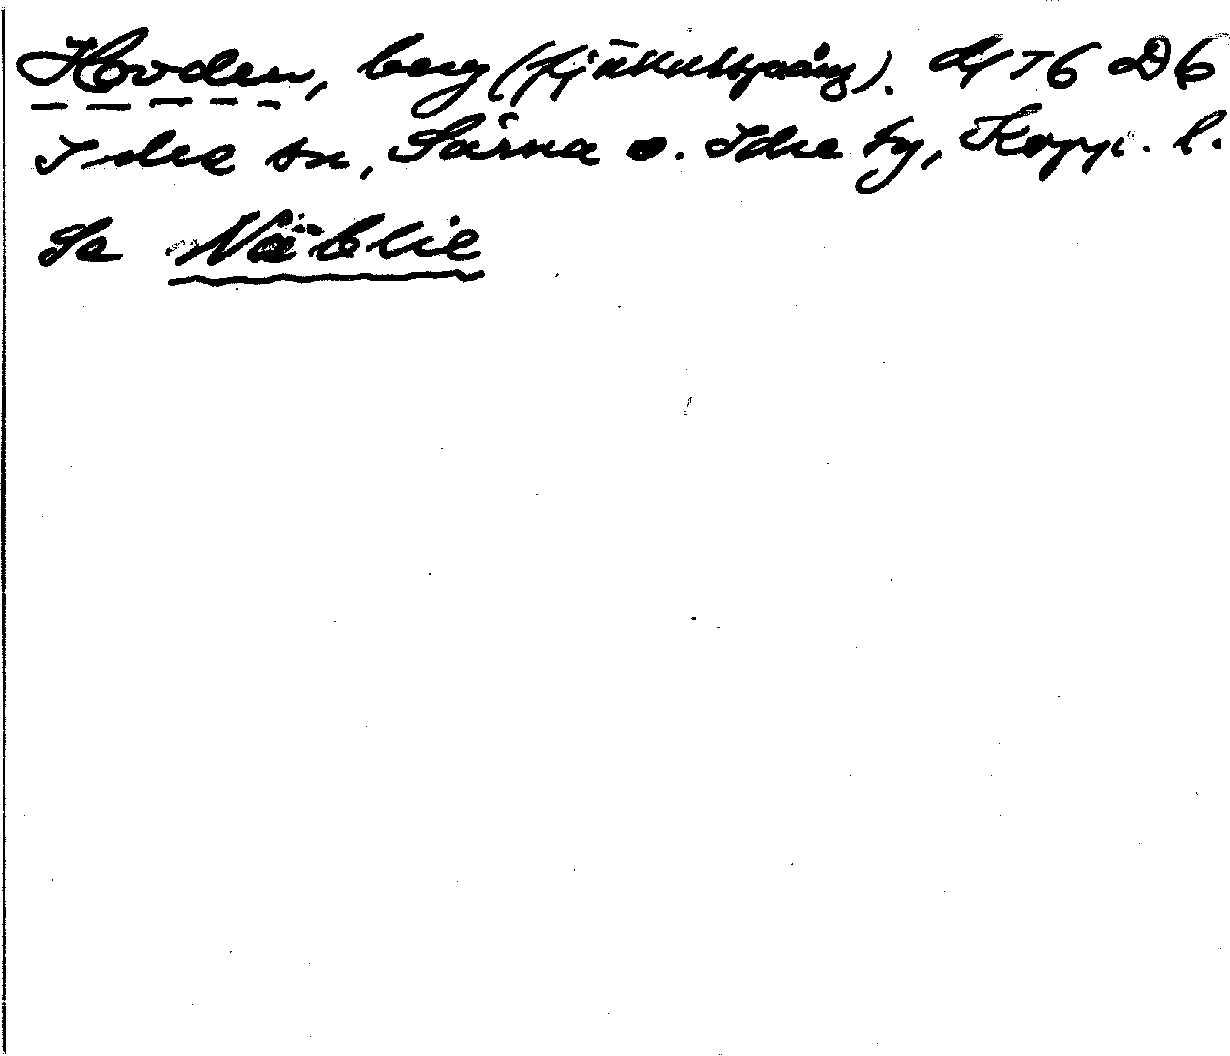 Hoden, berg (fjäll). df 76 D6
Idre sn, Särna o. Idre tg, Kopp. l.
Se Näblie